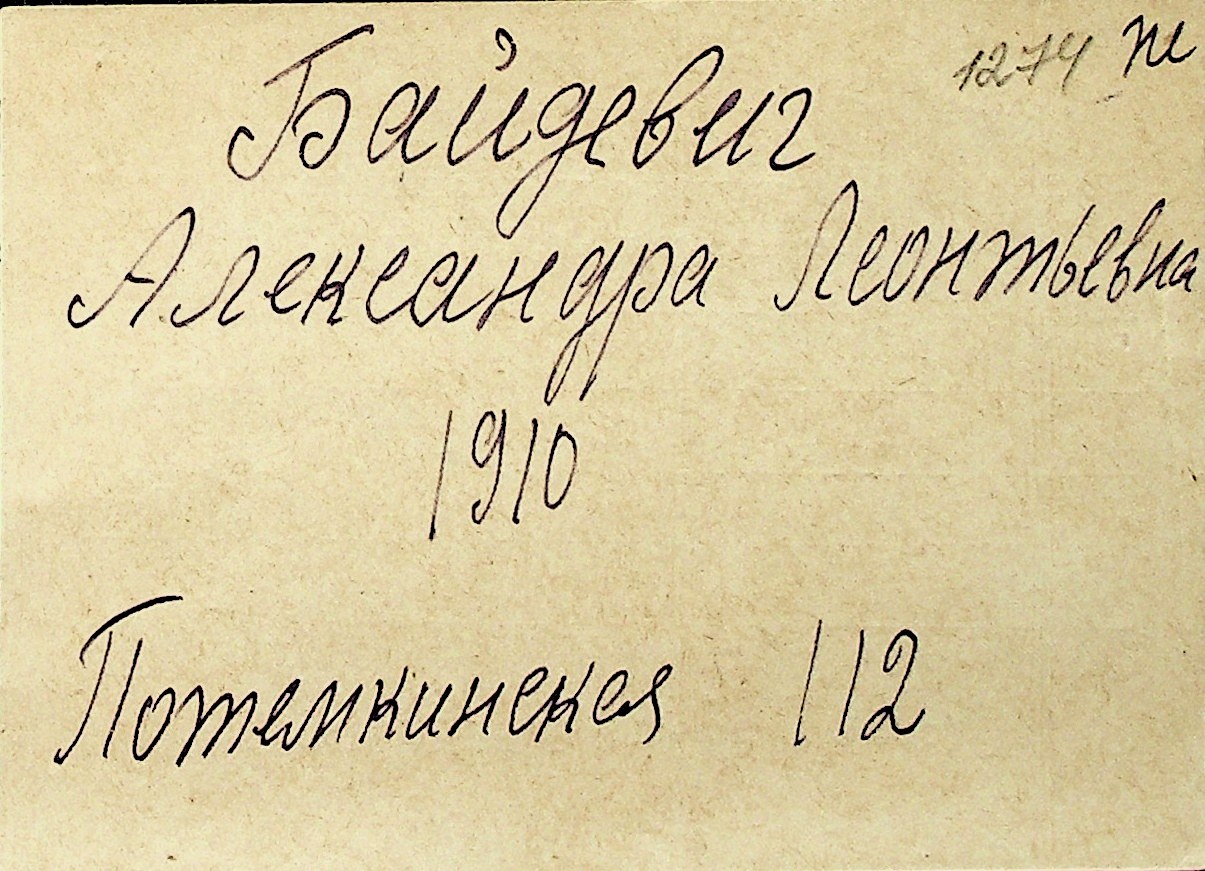 1274 Ж
Байдевич
Александра Леонтьевна
1910
Потемкинская 112